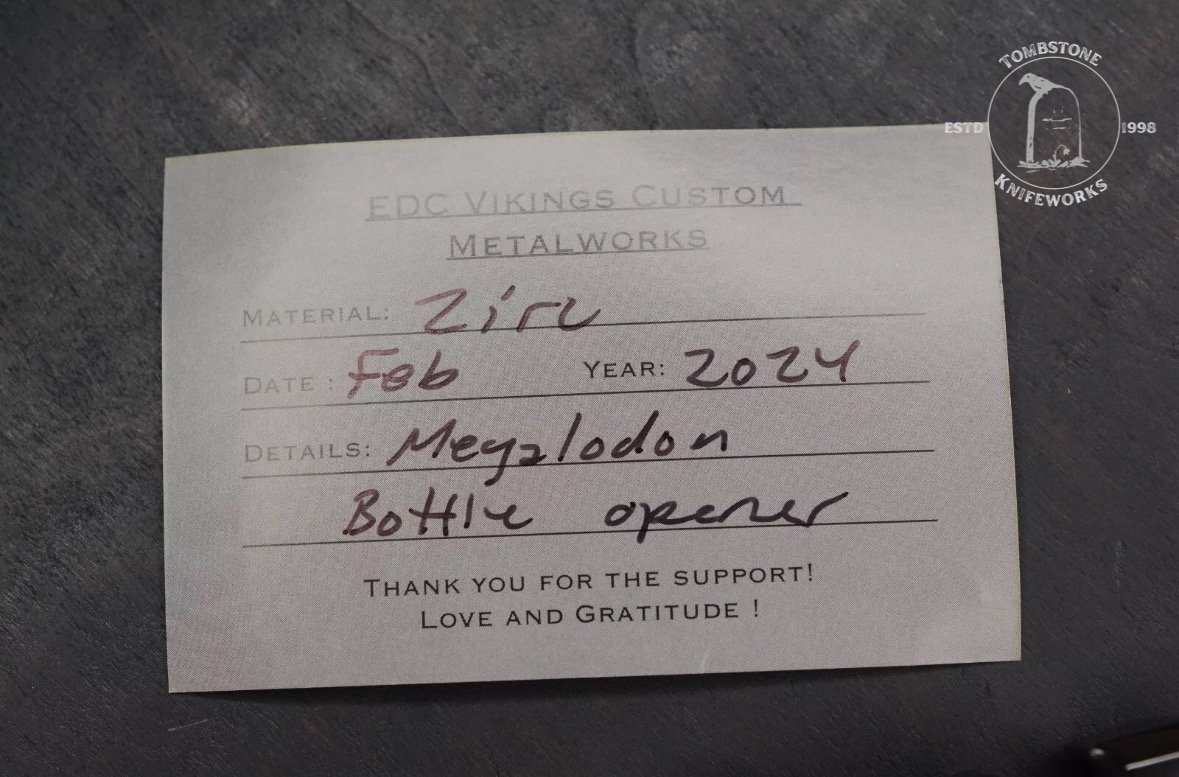 TOMBSTONE
ESTD 1998
KNIFEWORKS
EDC VIKINGS CUSTOM
METALWORKS
MATERIAL: Zirc
DATE : Feb YEAR: 2024
DETAILS: Megalodon
Bottle opener
THANK YOU FOR THE SUPPORT!
LOVE AND GRATITUDE !